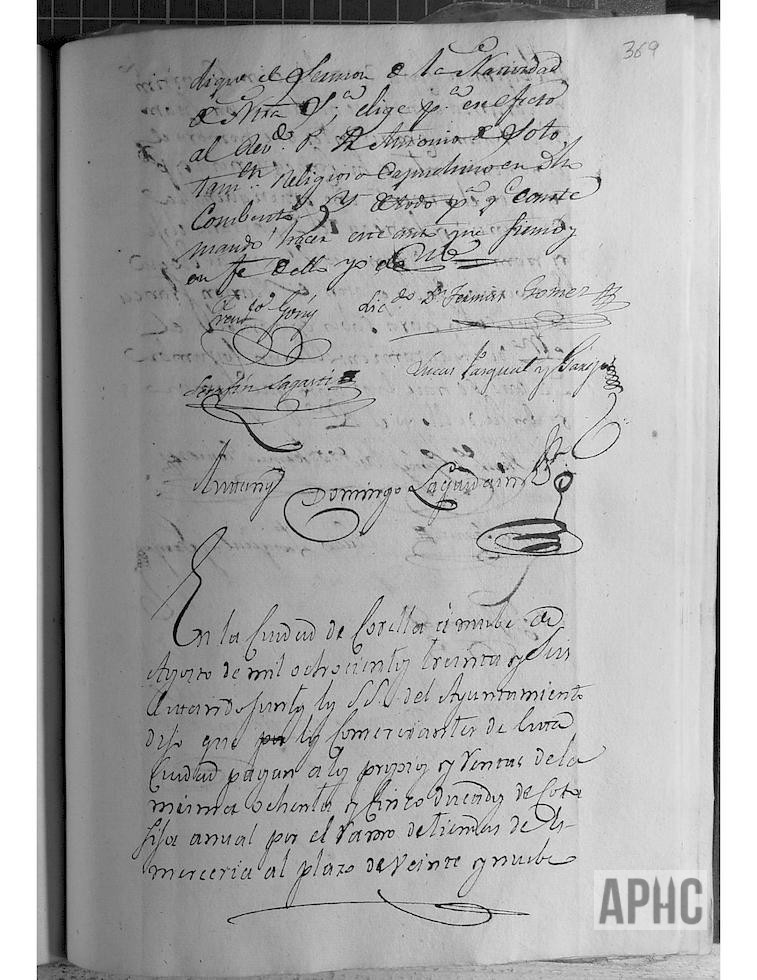 369
dique el Sermon de la Natividad
de Ntra Sra, elige pa. en efecto
al Revdo. P. Fr. Antonio de Soto,
tambn. Religioso Capuchino en dho
Combento, y de todo pa. q. conste
mando hacer este auto que firmo y
en fe de ello yo el
Gomez
Serafin Sagasti
Lucas Pasqual y
Antemy Domingo Laguardia
En la Ciudad de Corella á nuebe de
Agosto de mil ochocientos treinta y seis
Estando juntos los SS. del Ayuntamiento
dijo que los Comerciantes de esta
Ciudad pagan a los propios y rentas de la
misma ochenta y cinco ducados de cota
fija anual por el ramo de tiendas de
merceria al plazo de veinte y nuebe
APHC